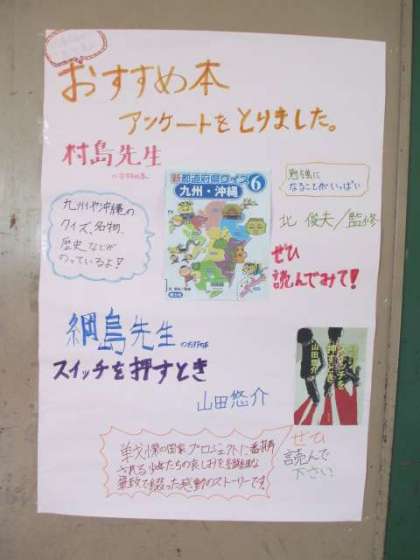 おすすめ本
アンケートをとりました。
村島先生
のおすすめ本
九州や沖縄の
クイズ、名物、
歴史などが
のっているよ!
新都道府県クイズ6
九州・沖縄
勉強に
なることがいっぱい
北 俊夫/監修
ぜひ
読んでみて!
綱島先生
のおすすめ本
スイッチを押すとき
山田悠介
スイッチを
押すとき
山田悠介
の国家プロジェクトに
される少年たちの哀しみを
筆致で綴った感動のストーリーです。
ぜひ
読んで
下さい